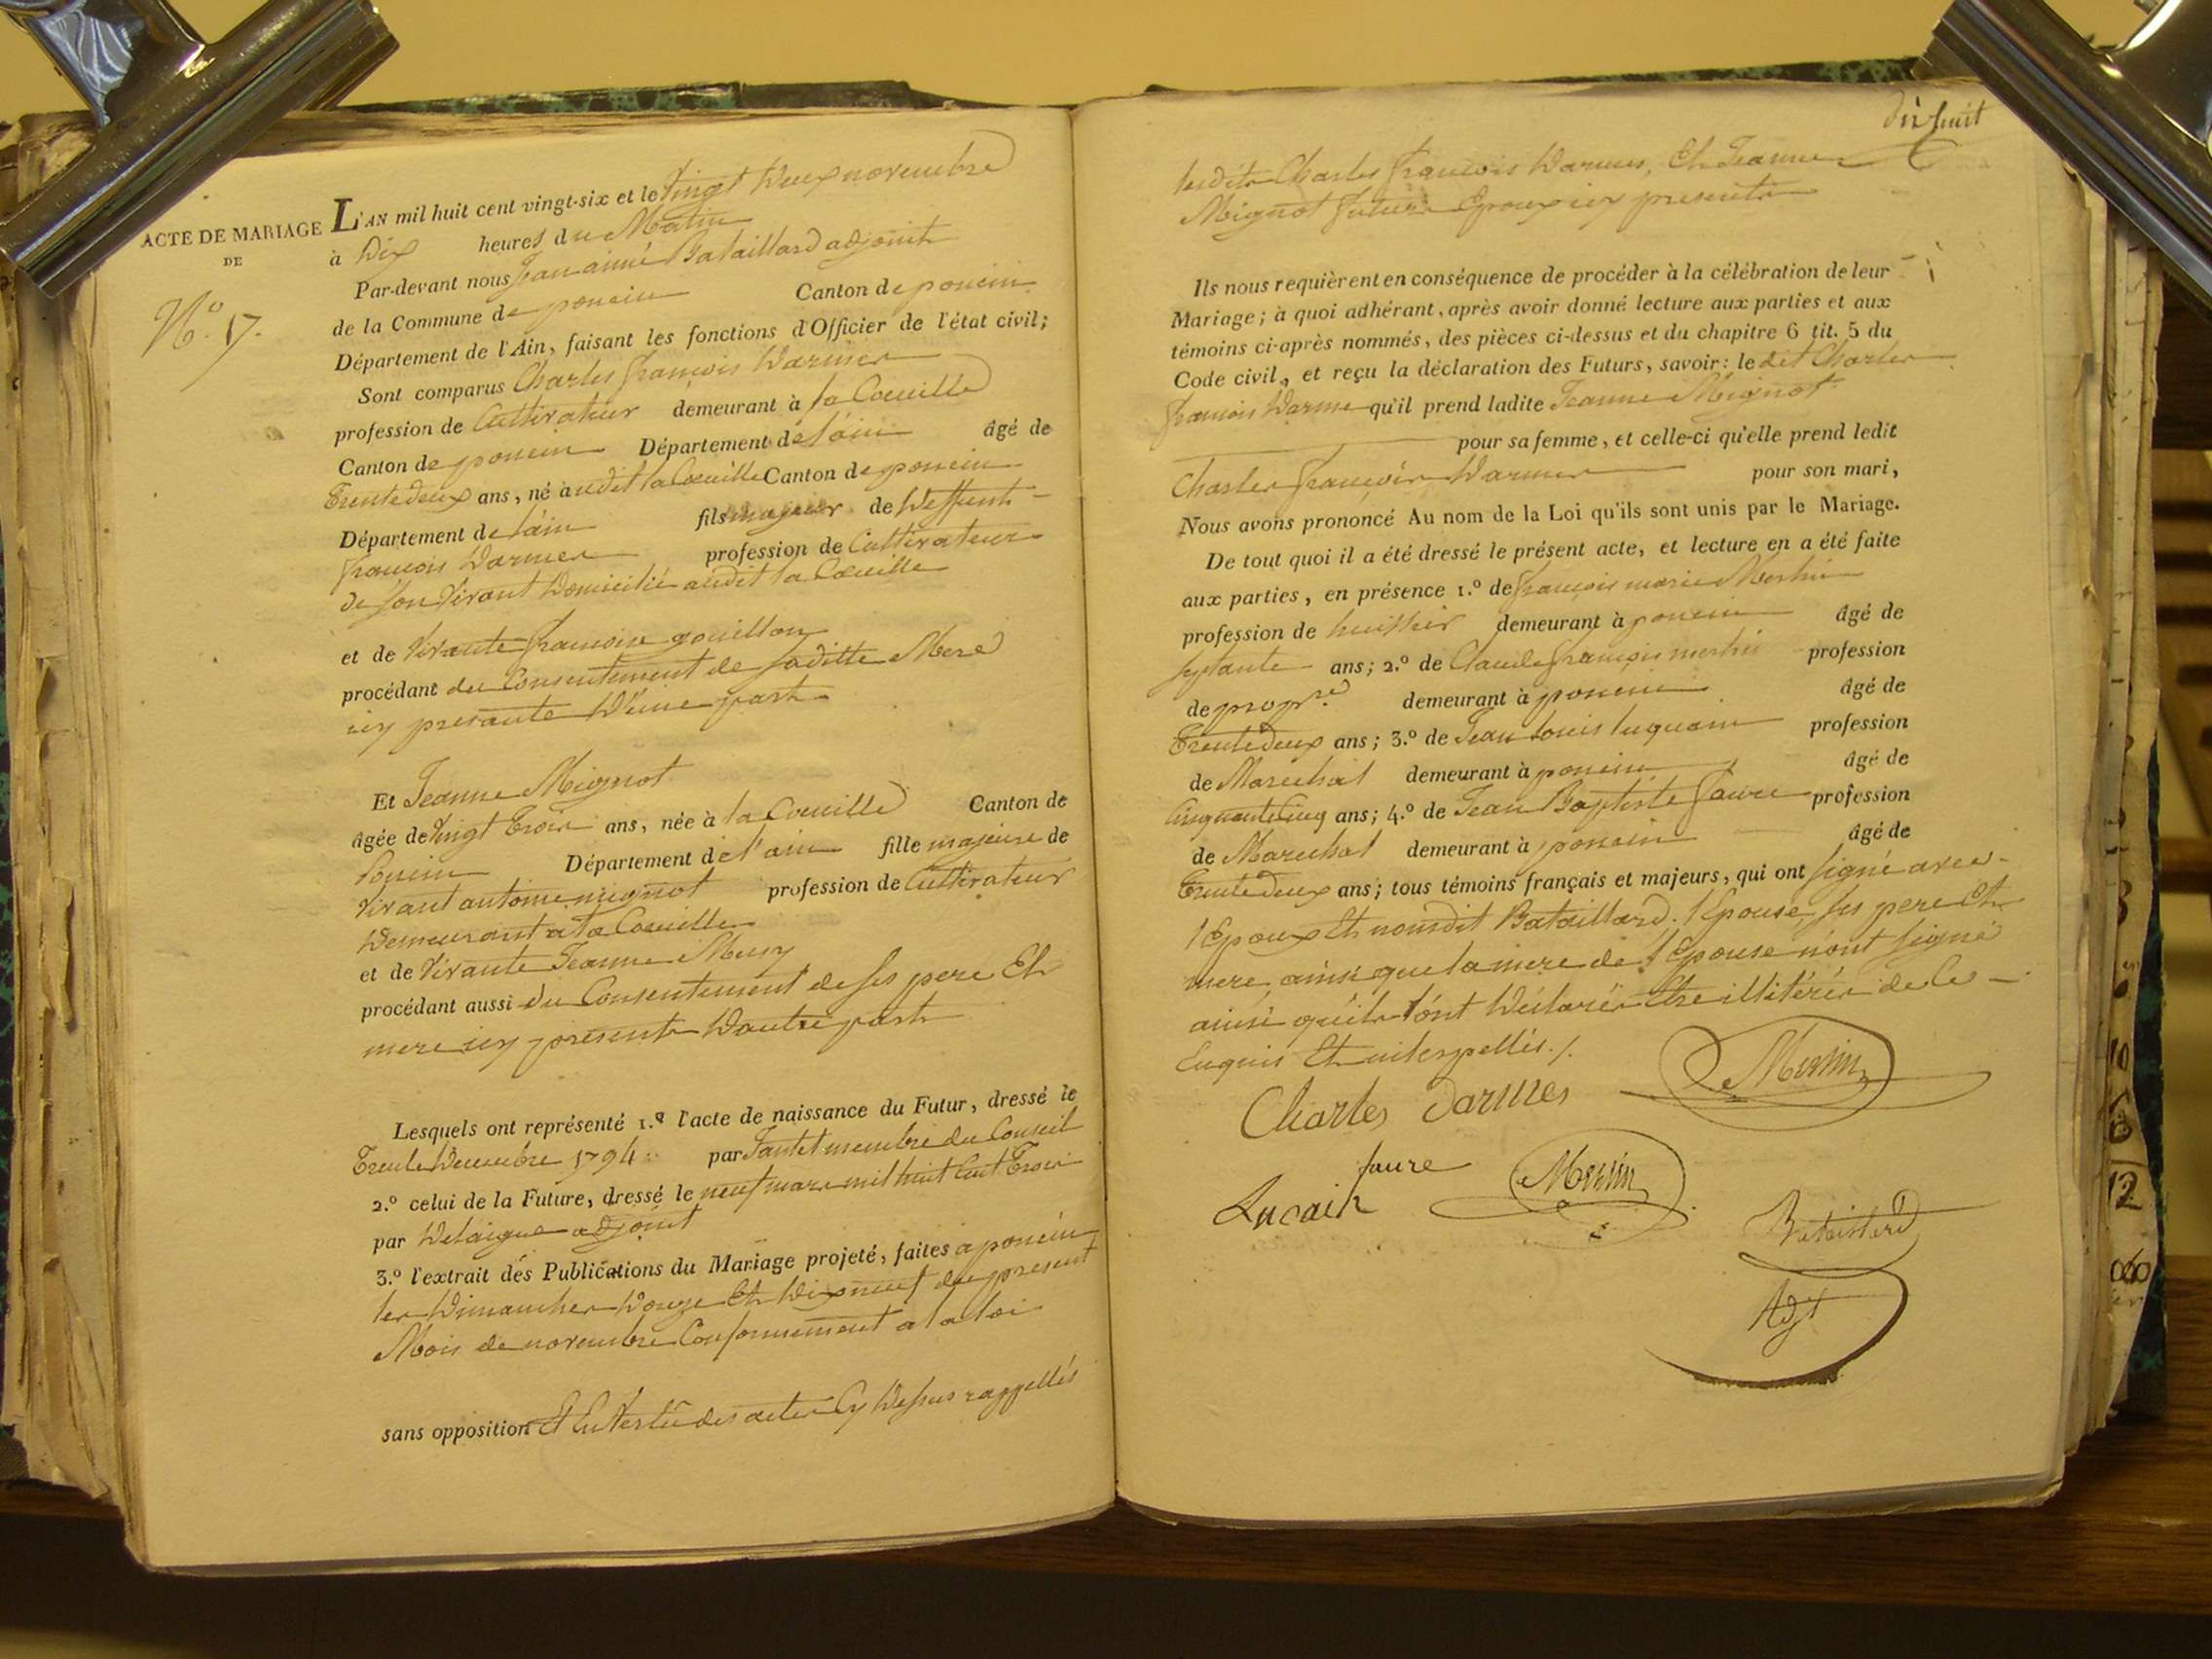 ACTE DE MARIAGE
DE
N.o 17.
L'AN mil huit cent vingt-six et le vingt Deux novembre
à Dix heures du Matin
Par-devant nous Jean aimé Bataillard adjoint
de la Commune de poncin Canton de poncin
Département de l'Ain, faisant les fonctions d'Officier de l'état civil;
Sont comparus Charles françois Darmes
profession de Cultivateur demeurant à la Coeuille
Canton de poncin Département de l'ain âgé de
Trente deux ans, né audit la Coeuille Canton de poncin
Département de l'ain fils majeur de Deffunt
françois Darmes profession de Cultivateur
de son vivant Domicilié audit la Coeuille
et de vivante françoise gouillon
procédant du Consentement de saditte Mere
icy presante D'une part
Et Jeanne Mignot
âgée de vingt Trois ans, née à la Coeuille Canton de
Poncin Département de l'ain fille majeure de
vivant antoine mignot profession de Cultivateur
Demeurant a la Coeuille
et de vivante Jeanne
procédant aussi du Consentement de ses pere Et
mere icy presents D'autre part
Lesquels ont représenté 1.o l'acte de naissance du Futur, dressé le
Trente Decembre 1794 par membre du Conseil
2.o celui de la Future, dressé le neuf mars mil huit Cent Trois
par Delaigue adjoint
3.o l'extrait des Publications du Mariage projeté, faites a poncin
les Dimanches Douze Et Dix neuf du present
Mois de novembre Conformement a la loi
sans opposition Et En Vertu des actes Cy Dessus rappellés
dix huit
lesdits Charles françois Darmes, Et Jeanne
Mignot futurs Epoux icy presents
Ils nous requièrent en conséquence de procéder à la célébration de leur
Mariage; à quoi adhérant, après avoir donné lecture aux parties et aux
témoins ci-après nommés, des pièces ci-dessus et du chapitre 6 tit. 5 du
Code civil, et reçu la déclaration des Futurs, savoir: le dit Charles
françois Darmes qu'il prend ladite Jeanne Mignot
pour sa femme, et celle-ci qu'elle prend ledit
Charles françois Darmes pour son mari,
Nous avons prononcé Au nom de la Loi qu'ils sont unis par le Mariage.
De tout quoi il a été dressé le présent acte, et lecture en a été faite
aux parties, en présence 1.o de françois marie Mestin
profession de huissier demeurant à poncin âgé de
septante ans; 2.o de Claude françois mestin profession
de propre. demeurant à poncin âgé de
Trente deux ans; 3.o de Jean Louis luquain profession
de Marechal demeurant à poncin âgé de
Cinquante Cinq ans; 4.o de Jean Baptiste faure profession
de Marechal demeurant à poncin âgé de
Trente deux ans; tous témoins français et majeurs, qui ont signé avec
l'Epoux Et nousdit Bataillard. l'Epouse, ses pere Et
mere, ainsi que la mere de l'Epouse n'ont signé
ainsi qu'ils l'ont Déclarés Etre illitérés de Ce
Enquis Et interpellés./.
Charles Darmes
Mestin
faure
Mestin
Lucain
Bataillard
Adjt